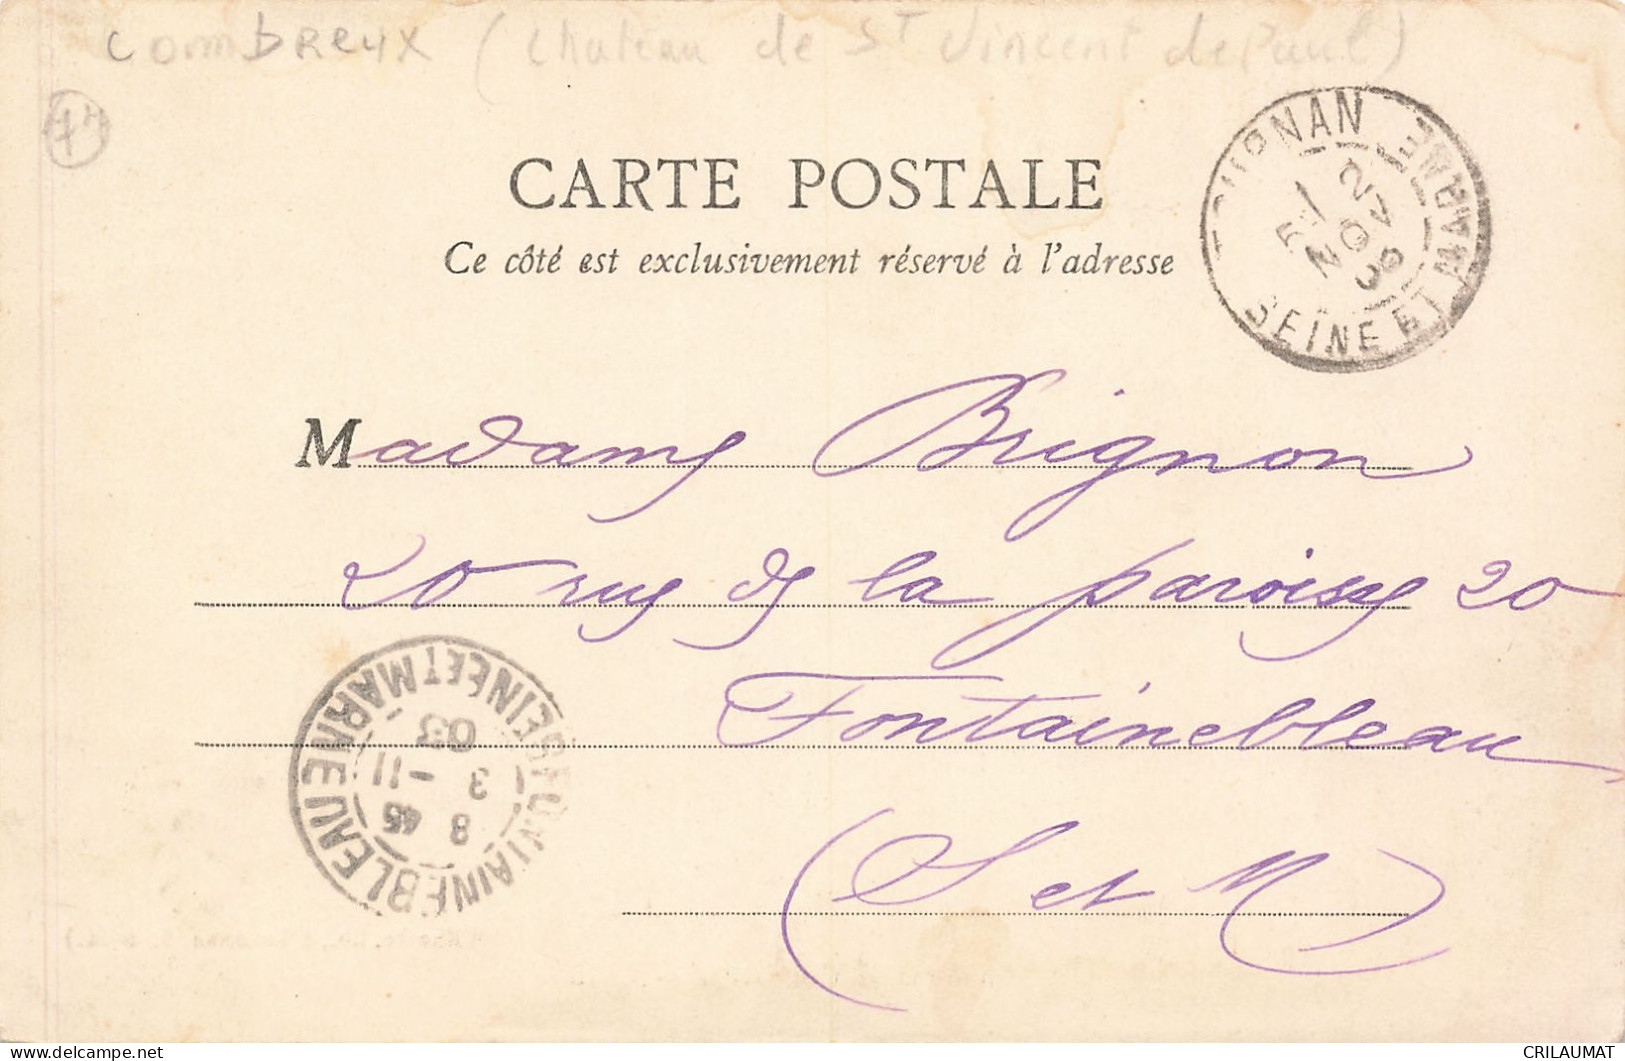 Combreux (Chateau de St Vincent de Paul)
77
CARTE POSTALE
Ce côté est exclusivement réservé à l'adresse
TOURNAN SEINE ET MARNE
2
NOV
Madame Brignon
20 rue de la paroisse 20
Fontainebleau
(S et M)
FONTAINEBLEAU SEINE ET MARNE
8 45
3 -11
03
CRILAUMAT